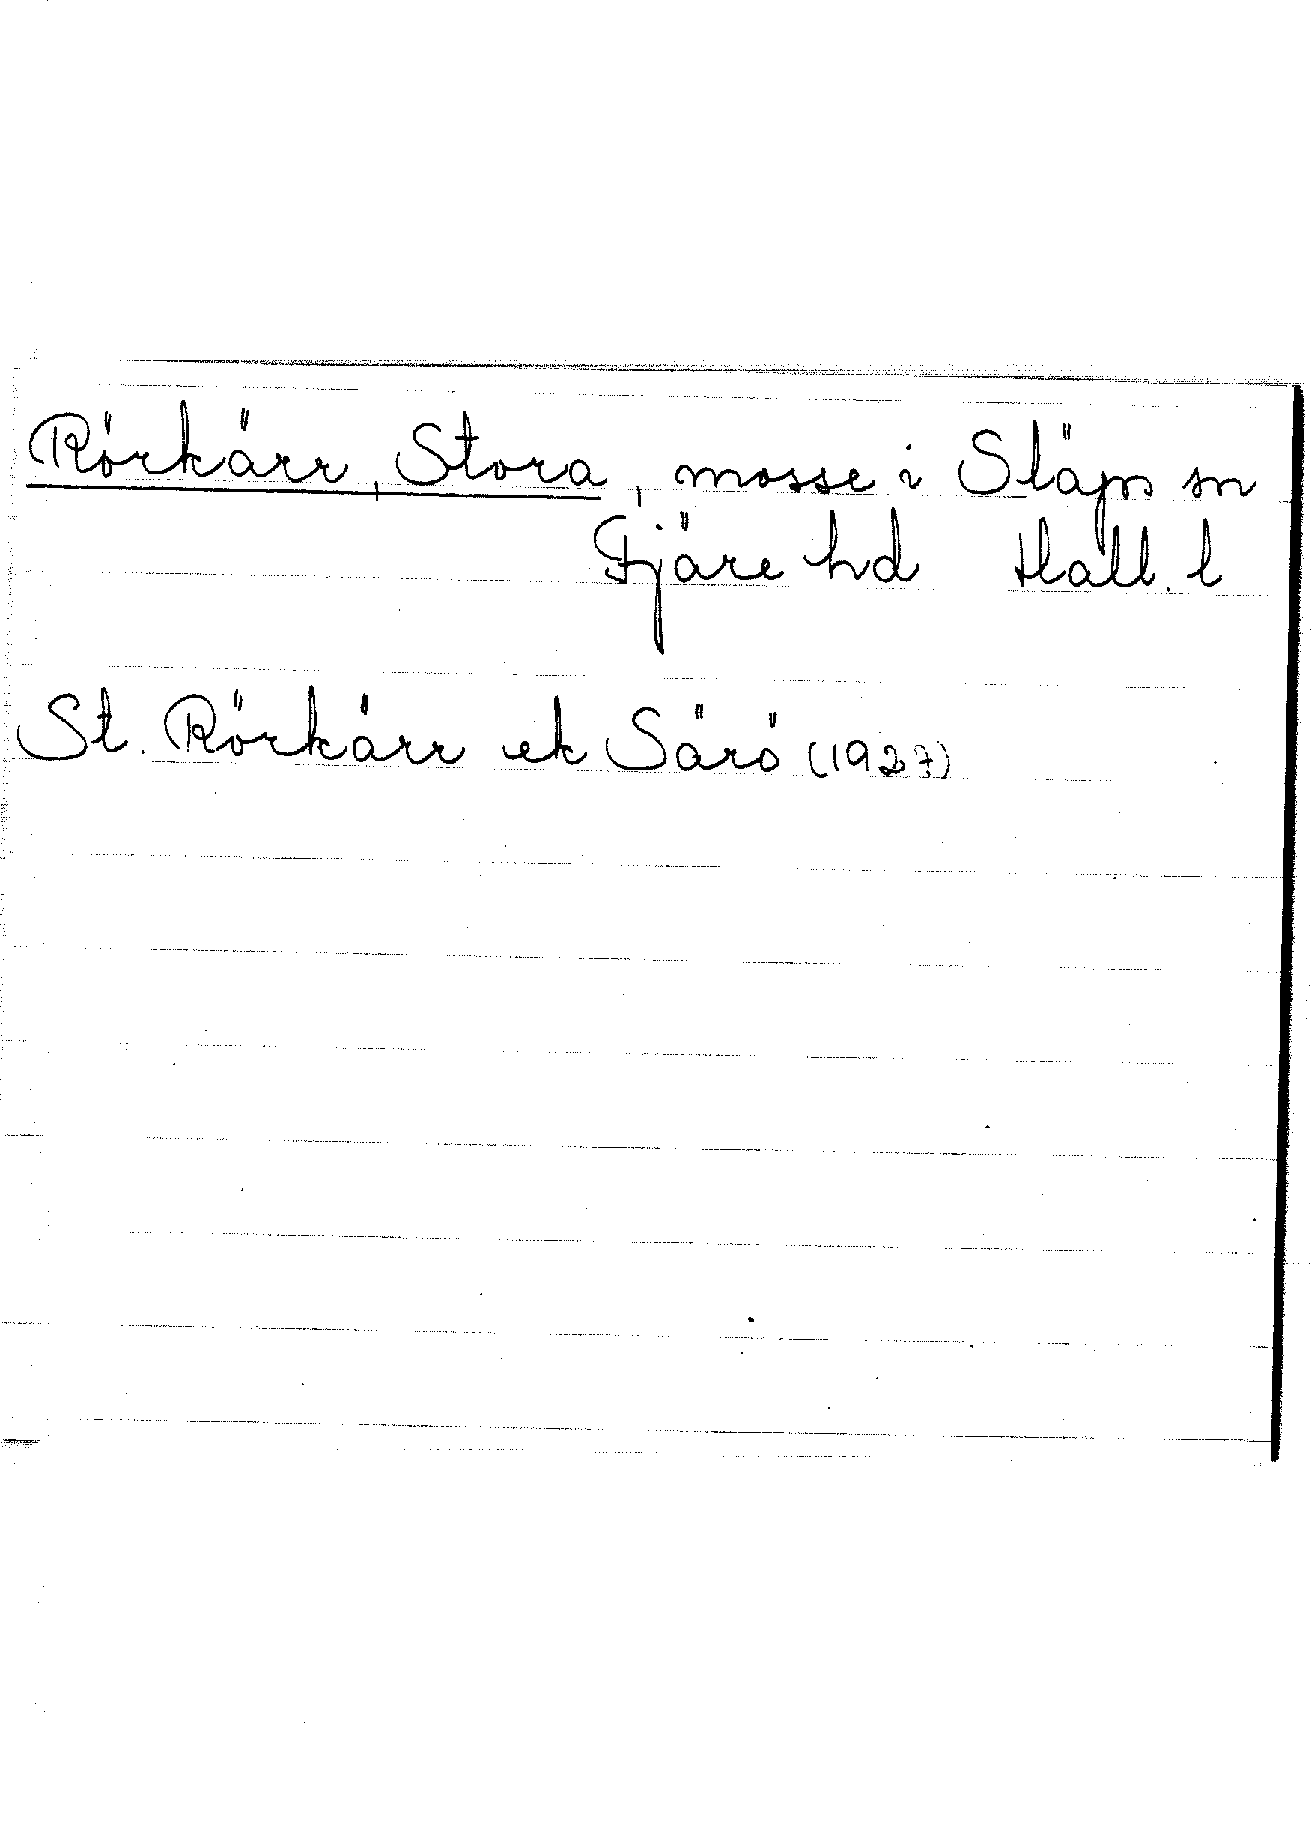 Rörkärr, Stora, mosse i Släps sn
Fjäre hd Hall. l
St. Rörkärr ek Särö (1927)